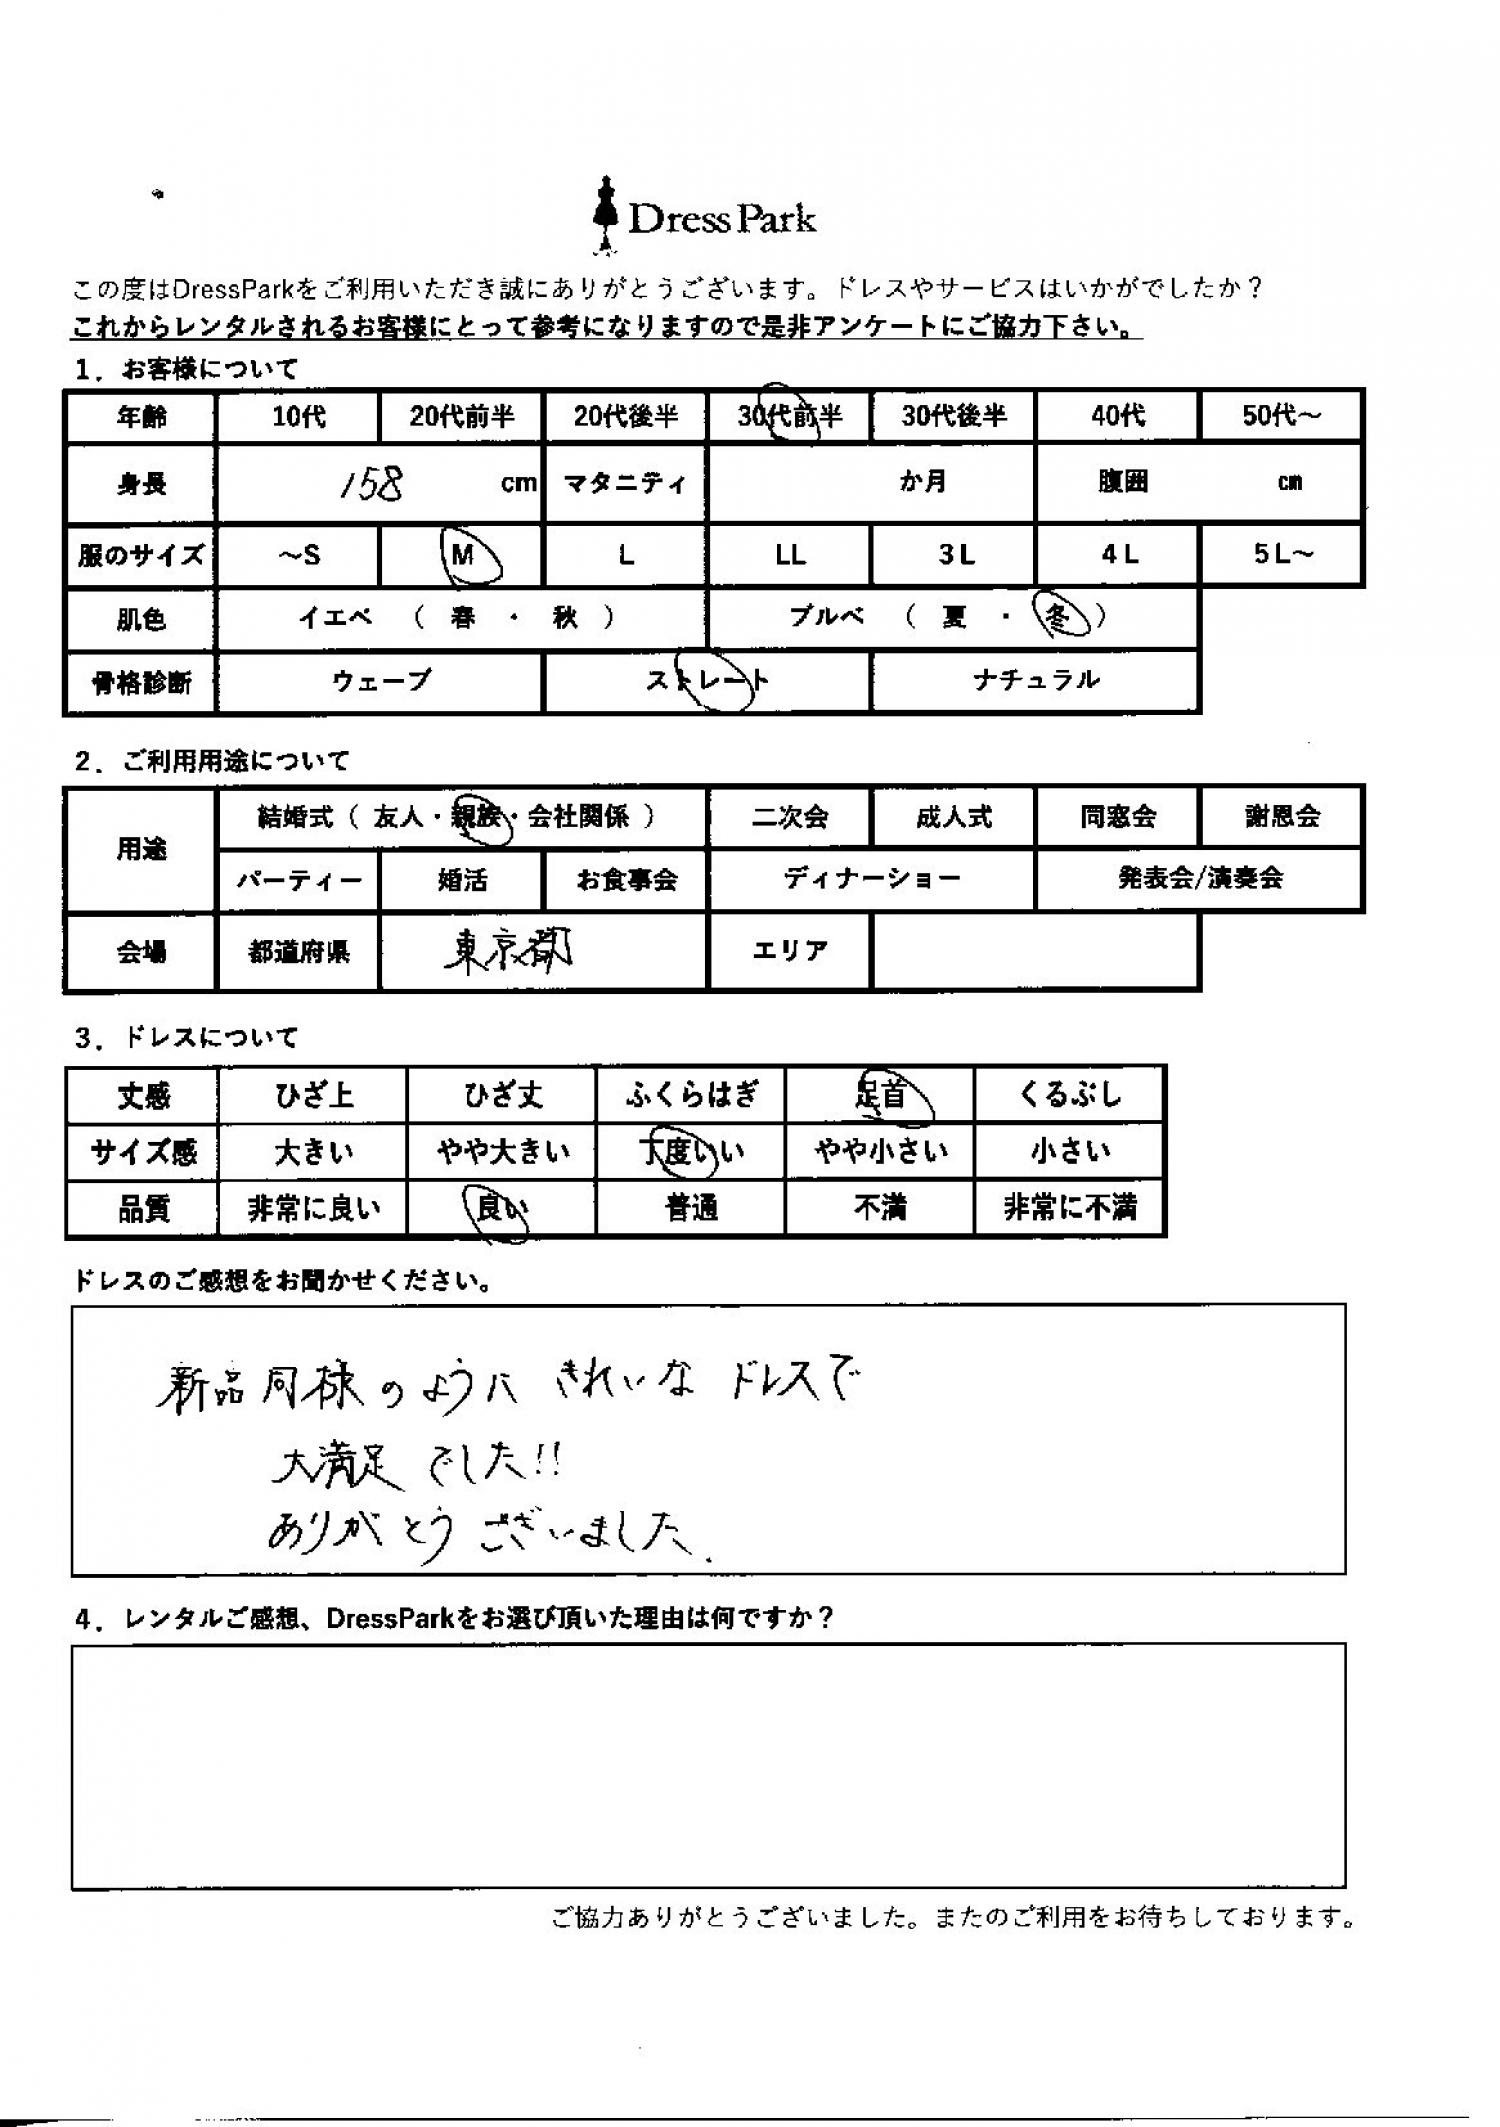 DressPark
この度はDressParkをご利用いただき誠にありがとうございます。ドレスやサービスはいかがでしたか？
これからレンタルされるお客様にとって参考になりますので是非アンケートにご協力下さい。
1．お客様について
年齢 10代 20代前半 20代後半 30代前半 30代後半 40代 50代～
身長 158 cm マタニティ か月 腹囲 cm
服のサイズ ～S M L LL 3L 4L 5L～
肌色 イエベ （ 春 ・ 秋 ） ブルベ （ 夏 ・ 冬 ）
骨格診断 ウェーブ ストレート ナチュラル
2．ご利用用途について
用途 結婚式（ 友人・親族・会社関係 ） 二次会 成人式 同窓会 謝恩会
パーティー 婚活 お食事会 ディナーショー 発表会/演奏会
会場 都道府県 東京都 エリア
3．ドレスについて
丈感 ひざ上 ひざ丈 ふくらはぎ 足首 くるぶし
サイズ感 大きい やや大きい 丁度いい やや小さい 小さい
品質 非常に良い 良い 普通 不満 非常に不満
ドレスのご感想をお聞かせください。
新品同様のように きれいな ドレスで
大満足 でした!!
ありがとう ございました.
4．レンタルご感想、DressParkをお選び頂いた理由は何ですか？
ご協力ありがとうございました。またのご利用をお待ちしております。